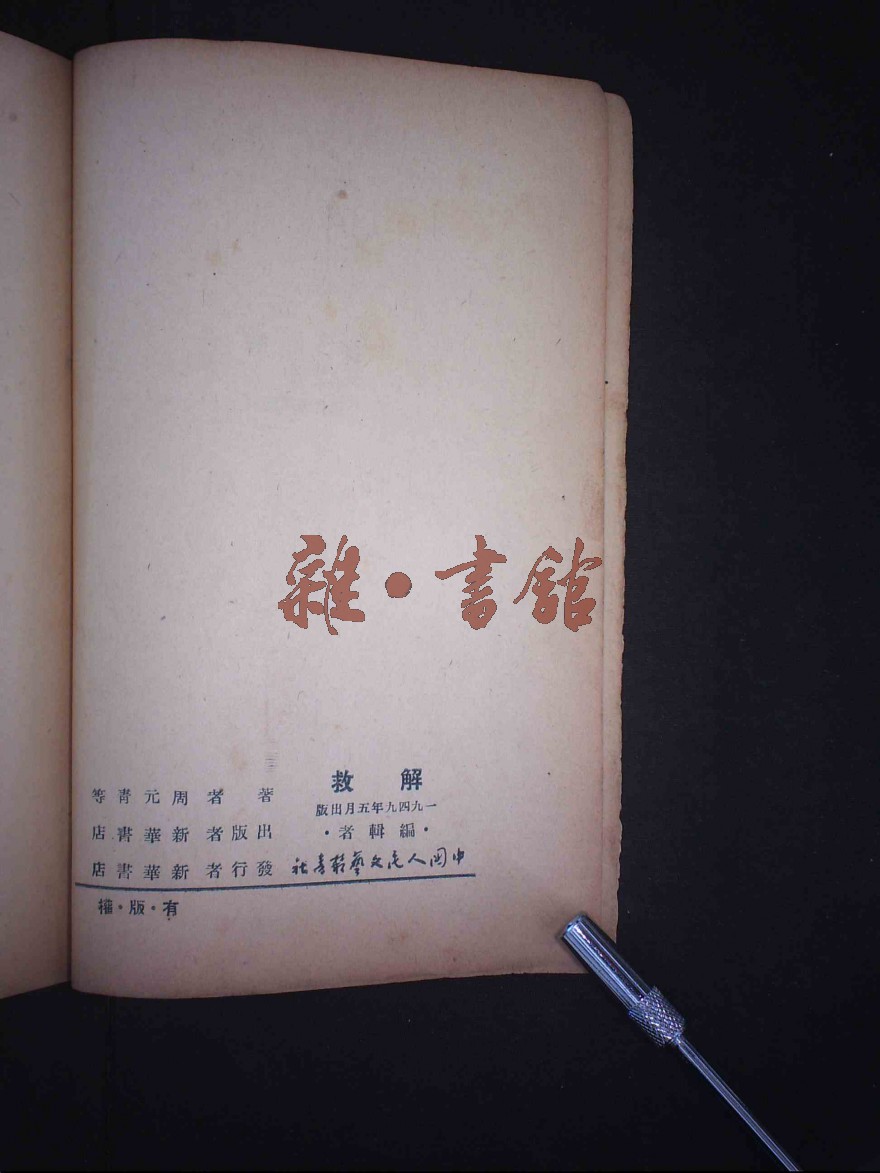 雜·書館
解救
一九四九年五月出版
·編輯者·
中国人民文藝叢書社
著者 周元青等
出版者 新華書店
發行者 新華書店
有·版·權